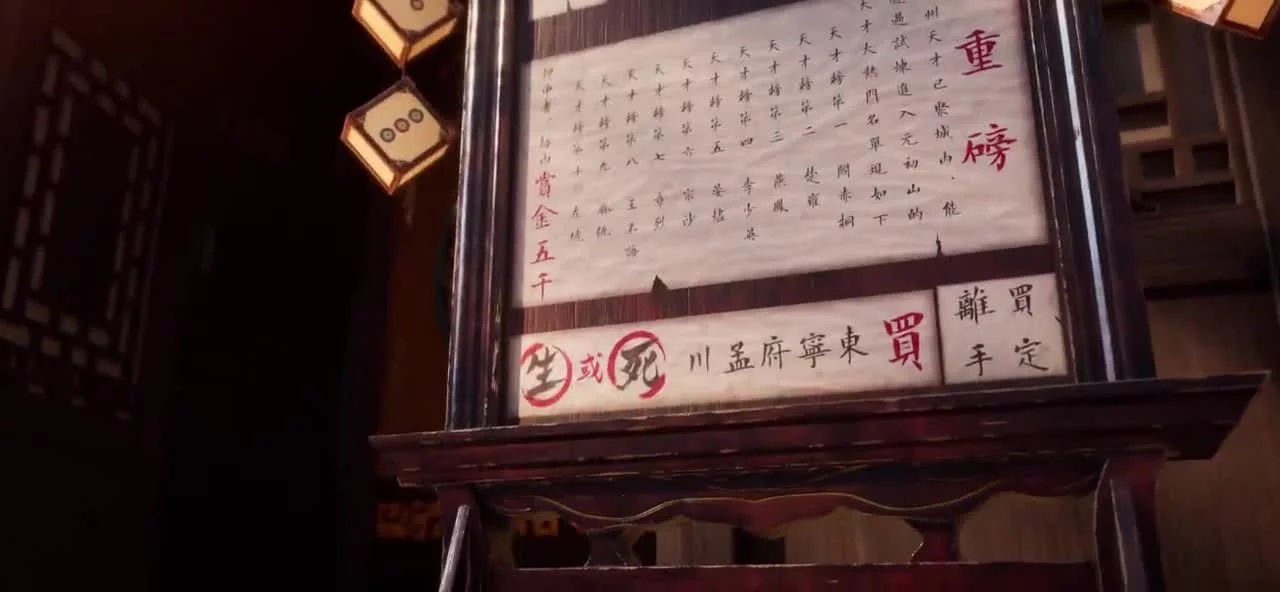 重磅
州天才已聚城内，能
過試煉進入元初山的
天才大熱門名單現如下
天才榜第一 閻赤桐
天才榜第二 楚雍
天才榜第三 燕鳳
天才榜第四 李少英
天才榜第五 晏燼
天才榜第六 宗沙
天才榜第七 章烈
天才榜第八 王不語
天才榜第九
天才榜第十
賞金五千
買定
離手
買東寧府孟川死或生